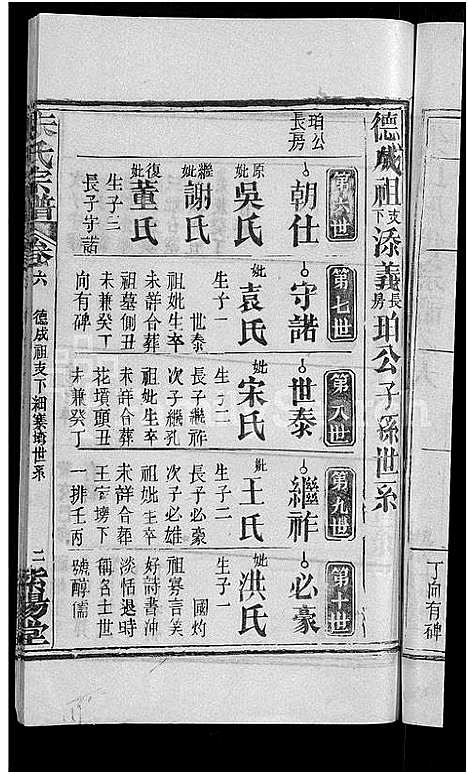 丁向有碑
德成祖支下添義長房珀公子孫世系
珀公長房
第六世
朝仕
原妣吳氏
繼妣謝氏
復妣董氏
生子二
長子守諾
第七世
守諾
妣袁氏
生子一
世泰
祖妣生卒
未詳合葬
祖墓側丑
未兼癸丁
向有碑
第八世
世泰
妣宋氏
生子二
長子繼祚
次子繼孔
祖妣生卒
未詳合葬
花墳頭丑
未兼癸丁
第九世
繼祚
妣王氏
生子二
長子必豪
次子必雄
祖妣生卒
未詳合葬
王家塝下
一排壬丙
第十世
必豪
妣洪氏
生子一
國灼
祖寡言笑
好詩書冲
淡恬退時
稱名士世
號醇儒
朱氏宗譜
卷六
德成祖支下細寨墖世系
二
紫陽堂